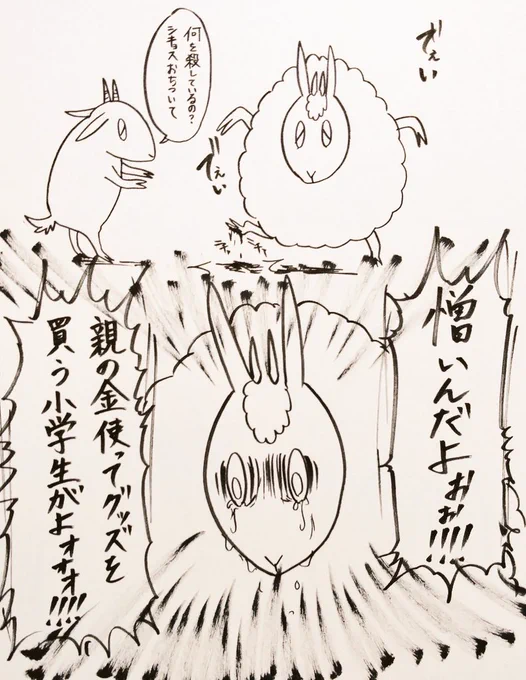 でぇい
何を殺しているの？
シチョスおちついて
でぇい
憎いんだよぉぉ!!!!
親の金使ってグッズを
買う小学生がよォォォ!!!!